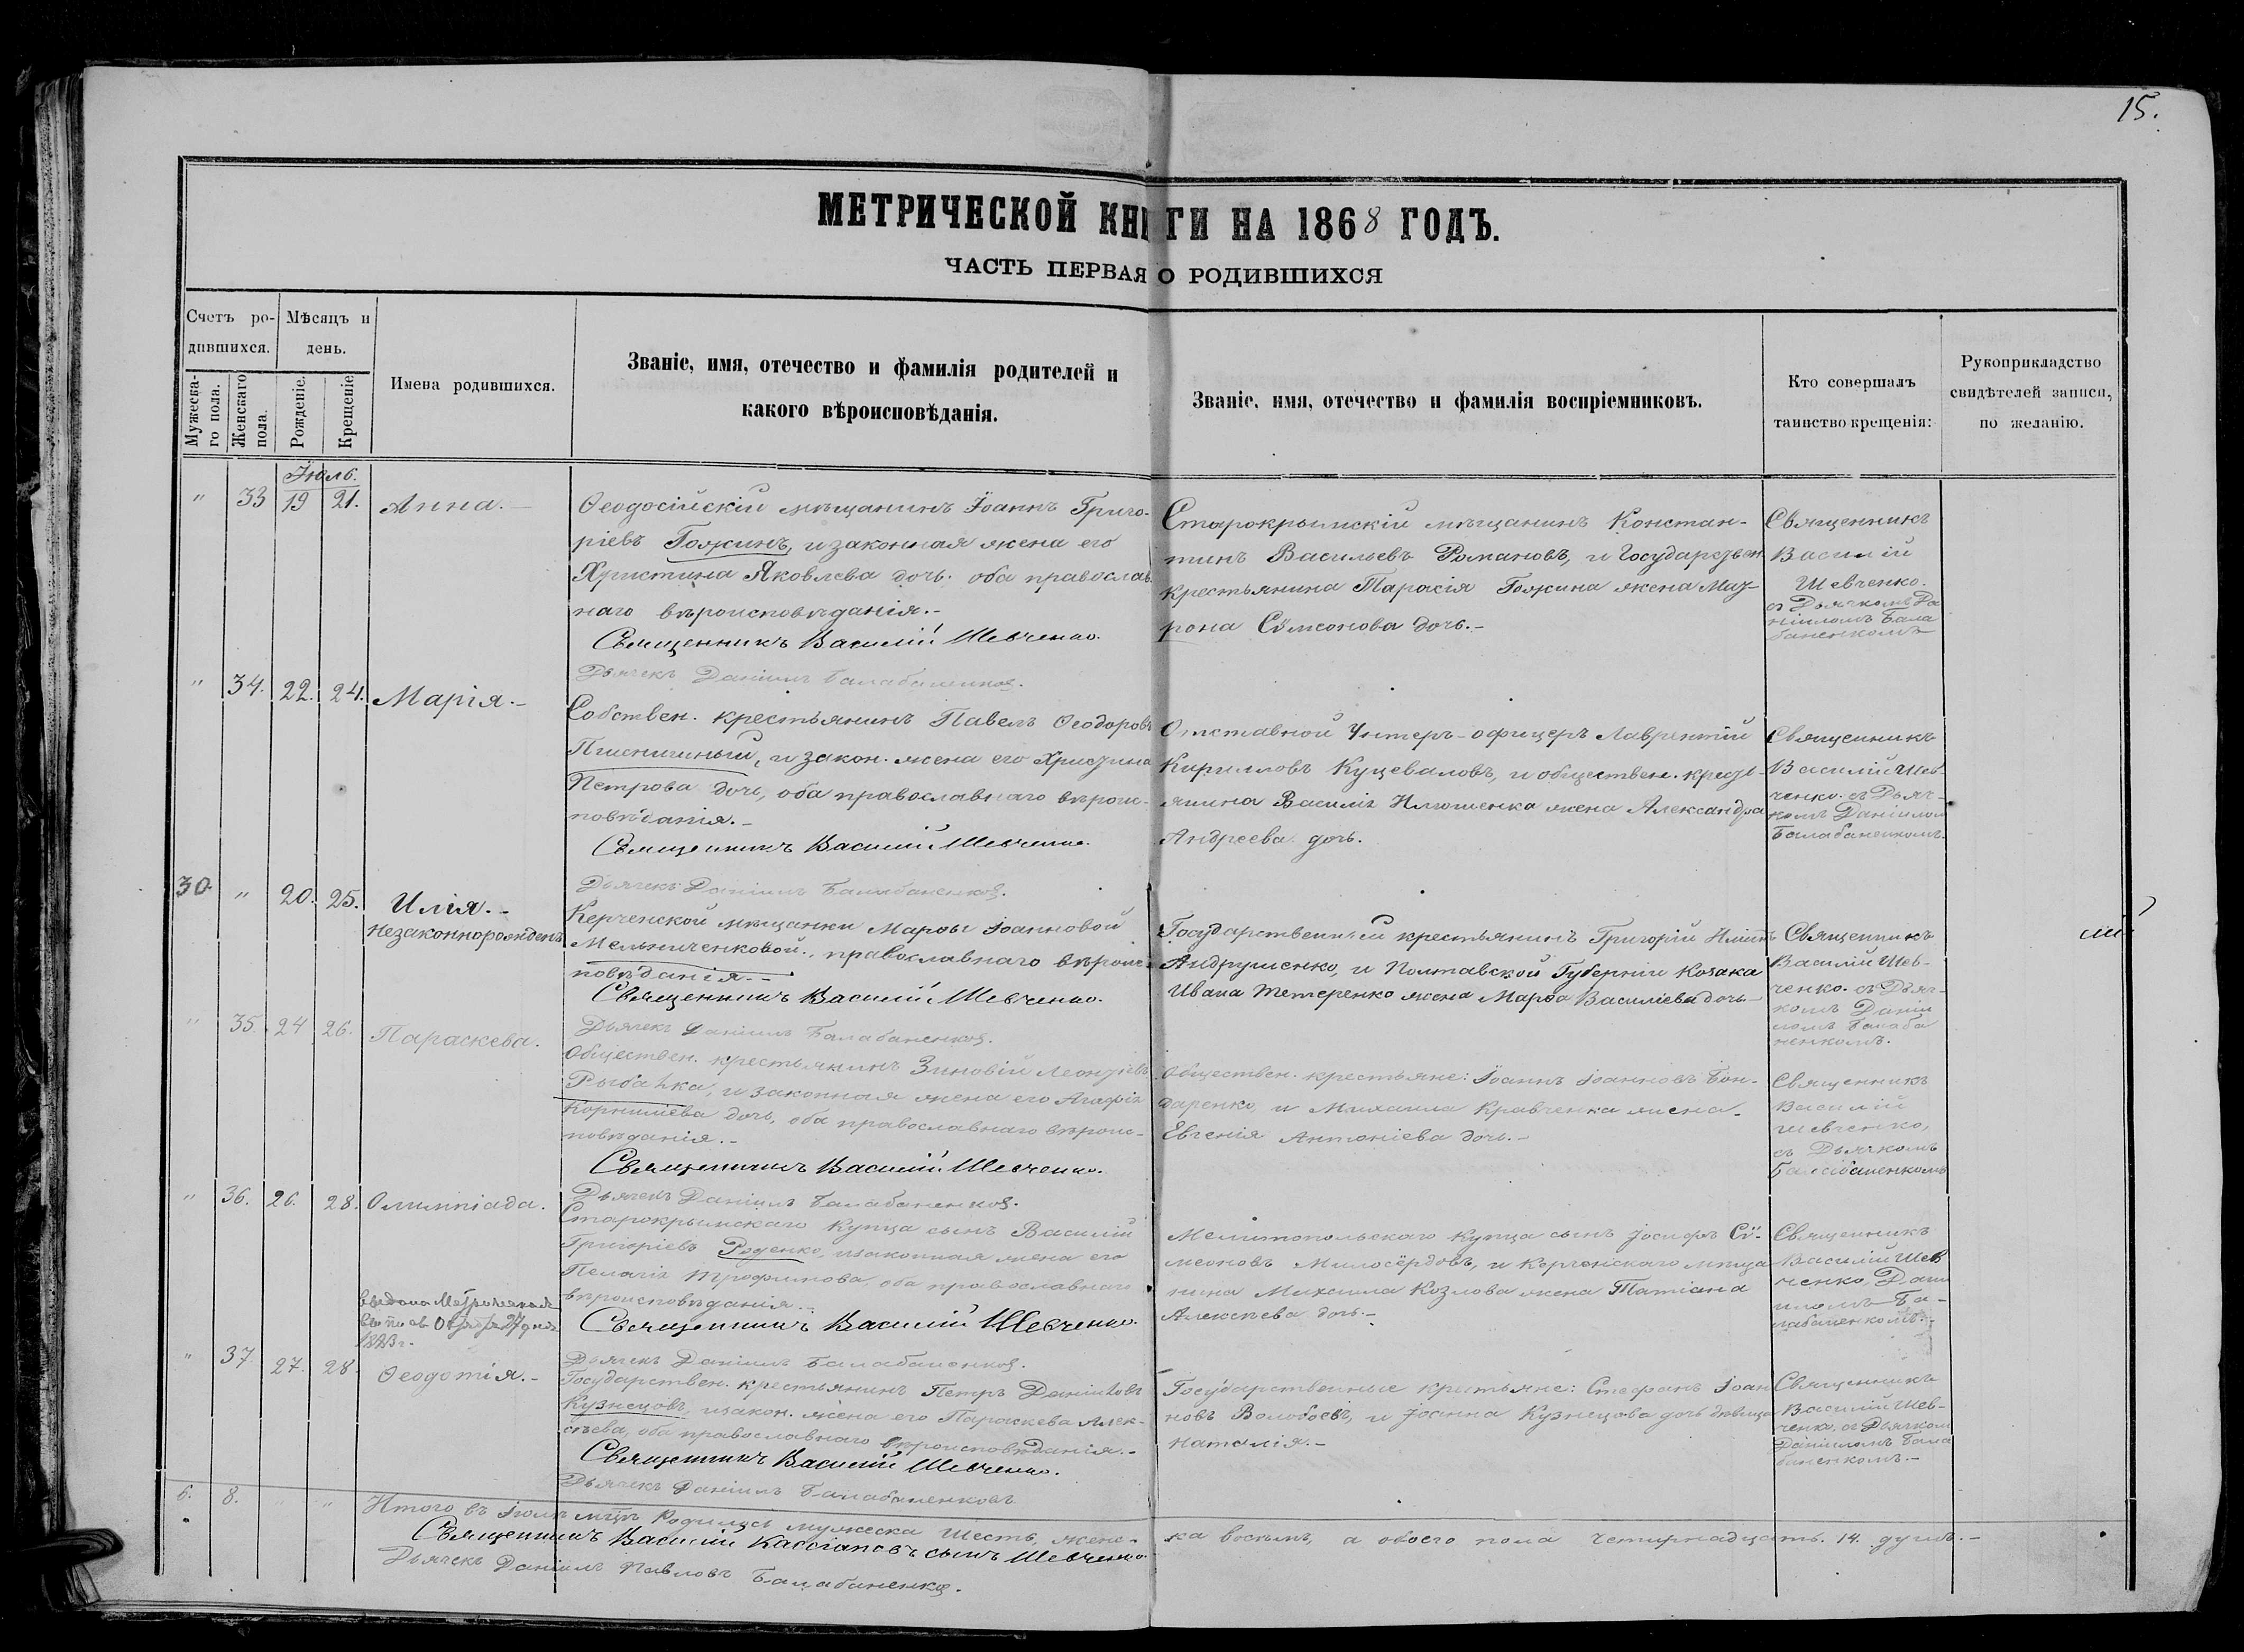 15.
МЕТРИЧЕСКОЙ КНИГИ НА 1868 ГОДЪ.
ЧАСТЬ ПЕРВАЯ О РОДИВШИХСЯ
Счетъ ро-
дившихся.
Мужеска-
го пола.
Женскаго
пола.
Мѣсяцъ и
день.
Рожденіе.
Крещеніе.
Имена родившихся.
Званіе, имя, отечество и фамилія родителей и
какого вѣроисповѣданія.
Званіе, имя, отечество и фамилія воспріемниковъ.
Кто совершалъ
таинство крещенія:
Рукоприкладство
свидѣтелей записи,
по желанію.
Іюль.
" 33 19 21. Анна.-
Ѳеодосійскій мѣщанинъ Іоаннъ Григо-
ріевъ Гожинъ, и законная жена его
Христина Яковлева дочь. оба православ-
наго вѣроисповѣданія.-
Священникъ Василій Шевченко.
Дьячекъ Даніилъ Балабаненковъ.
Старокрымскій мѣщанинъ Констан-
тинъ Васильевъ Романовъ, и Государствен.
крестьянина Тарасія Гожина жена Мат-
рона Сѵмеонова дочь.-
Священникъ
Василій
Шевченко.
съ Дьячкомъ Да
ніиломъ Бала
баненкомъ
" 34. 22. 24. Марія.-
Собствен. крестьянинъ Павелъ Ѳеодоровъ
Пшеничный, и закон. жена его Христина
Петрова дочь, оба православнаго вѣроис-
повѣданія.-
Священникъ Василій Шевченко.
Дьячекъ Даніилъ Балабаненковъ.
Отставной Унтеръ-офицеръ Лаврентій
Кирилловъ Куцеваловъ, и обществен. кресть-
янина Василія Илюшенка жена Александра
Андреева дочь.
Священникъ
Василій Шев-
ченко. съ Дьяч-
комъ Даніилом
Балабаненкомъ.
30 " 20. 25. Илія.-
Незаконнорожденъ
Керченской мѣщанки Марѳы Іоанновой
Мельниченковой., православнаго вѣроис-
повѣданія.-
Священникъ Василій Шевченко.
Дьячекъ Даніилъ Балабаненковъ.
Государственный крестьянинъ Григорій Иліинъ
Андрушенко, и Полтавской Губерніи Козака
Ивана Тетеренко жена Марѳа Василіева дочь
Священникъ
Василій Шев-
ченко. съ Дьяч-
комъ Даніи
ломъ Балаба
ненкомъ.
" 35. 24 26. Параскева.
Обществен. крестьянинъ Зиновій Леонтіевъ
Рыбалка, и законная жена его Агафія
Корниліева дочь, оба православнаго вѣроис-
повѣданія.-
Священникъ Василій Шевченко.
Дьячекъ Даніилъ Балабаненковъ.
Обществен. крестьяне: Іоаннъ Іоанновъ Бон-
даренко, и Михаила Кравченка жена
Евгенія Антоніева дочь.-
Священникъ
Василій
Шевченко,
съ Дьячкомъ
Балабаненкомъ
" 36. 26. 28. Олимпіада.
Старокрымскаго Купца сынъ Василій
Григоріевъ Роденко, изаконная жена его
Пелагія Трофимова, оба православнаго
вѣроисповѣданія.-
Священникъ Василій Шевченко.
Дьячекъ Даніилъ Балабаненковъ.
Мелитопольскаго Купца сынъ Іосифъ Сѵ-
меоновъ Милосёрдовъ, и Керченскаго мѣща
нина Михаила Козлова жена Татіана
Алексѣева дочь.-
Священникъ
Василій Шев
ченко, Дані
иломъ Ба-
лабаненкомъ.-
" 37. 27. 28. Ѳеодотія.-
Государствен. крестьянинъ Петръ Даніиловъ
Кузнецовъ, изакон. жена его Параскева Алек-
сѣева, оба православнаго вѣроисповѣданія.-
Священникъ Василій Шевченко.
Дьячекъ Даніилъ Балабаненковъ
Государственные крестьяне: Стефанъ Іоан
новъ Волобоевъ, и Іоанна Кузнецова дочь дѣвица
Наталія.-
Священникъ
Василій Шев-
ченко, съ Дьячком
Даніиломъ Бала
баненкомъ.-
6. 8. " " Итого въ Іюлѣ мцѣ Родилось мужеска шесть, женс-
ка восемь, а обоего пола четирнадцать. 14. душъ.-
Священникъ Василій Кассіановъ сынъ Шевченко.
Дьячекъ Даніилъ Павловъ Балабаненковъ.